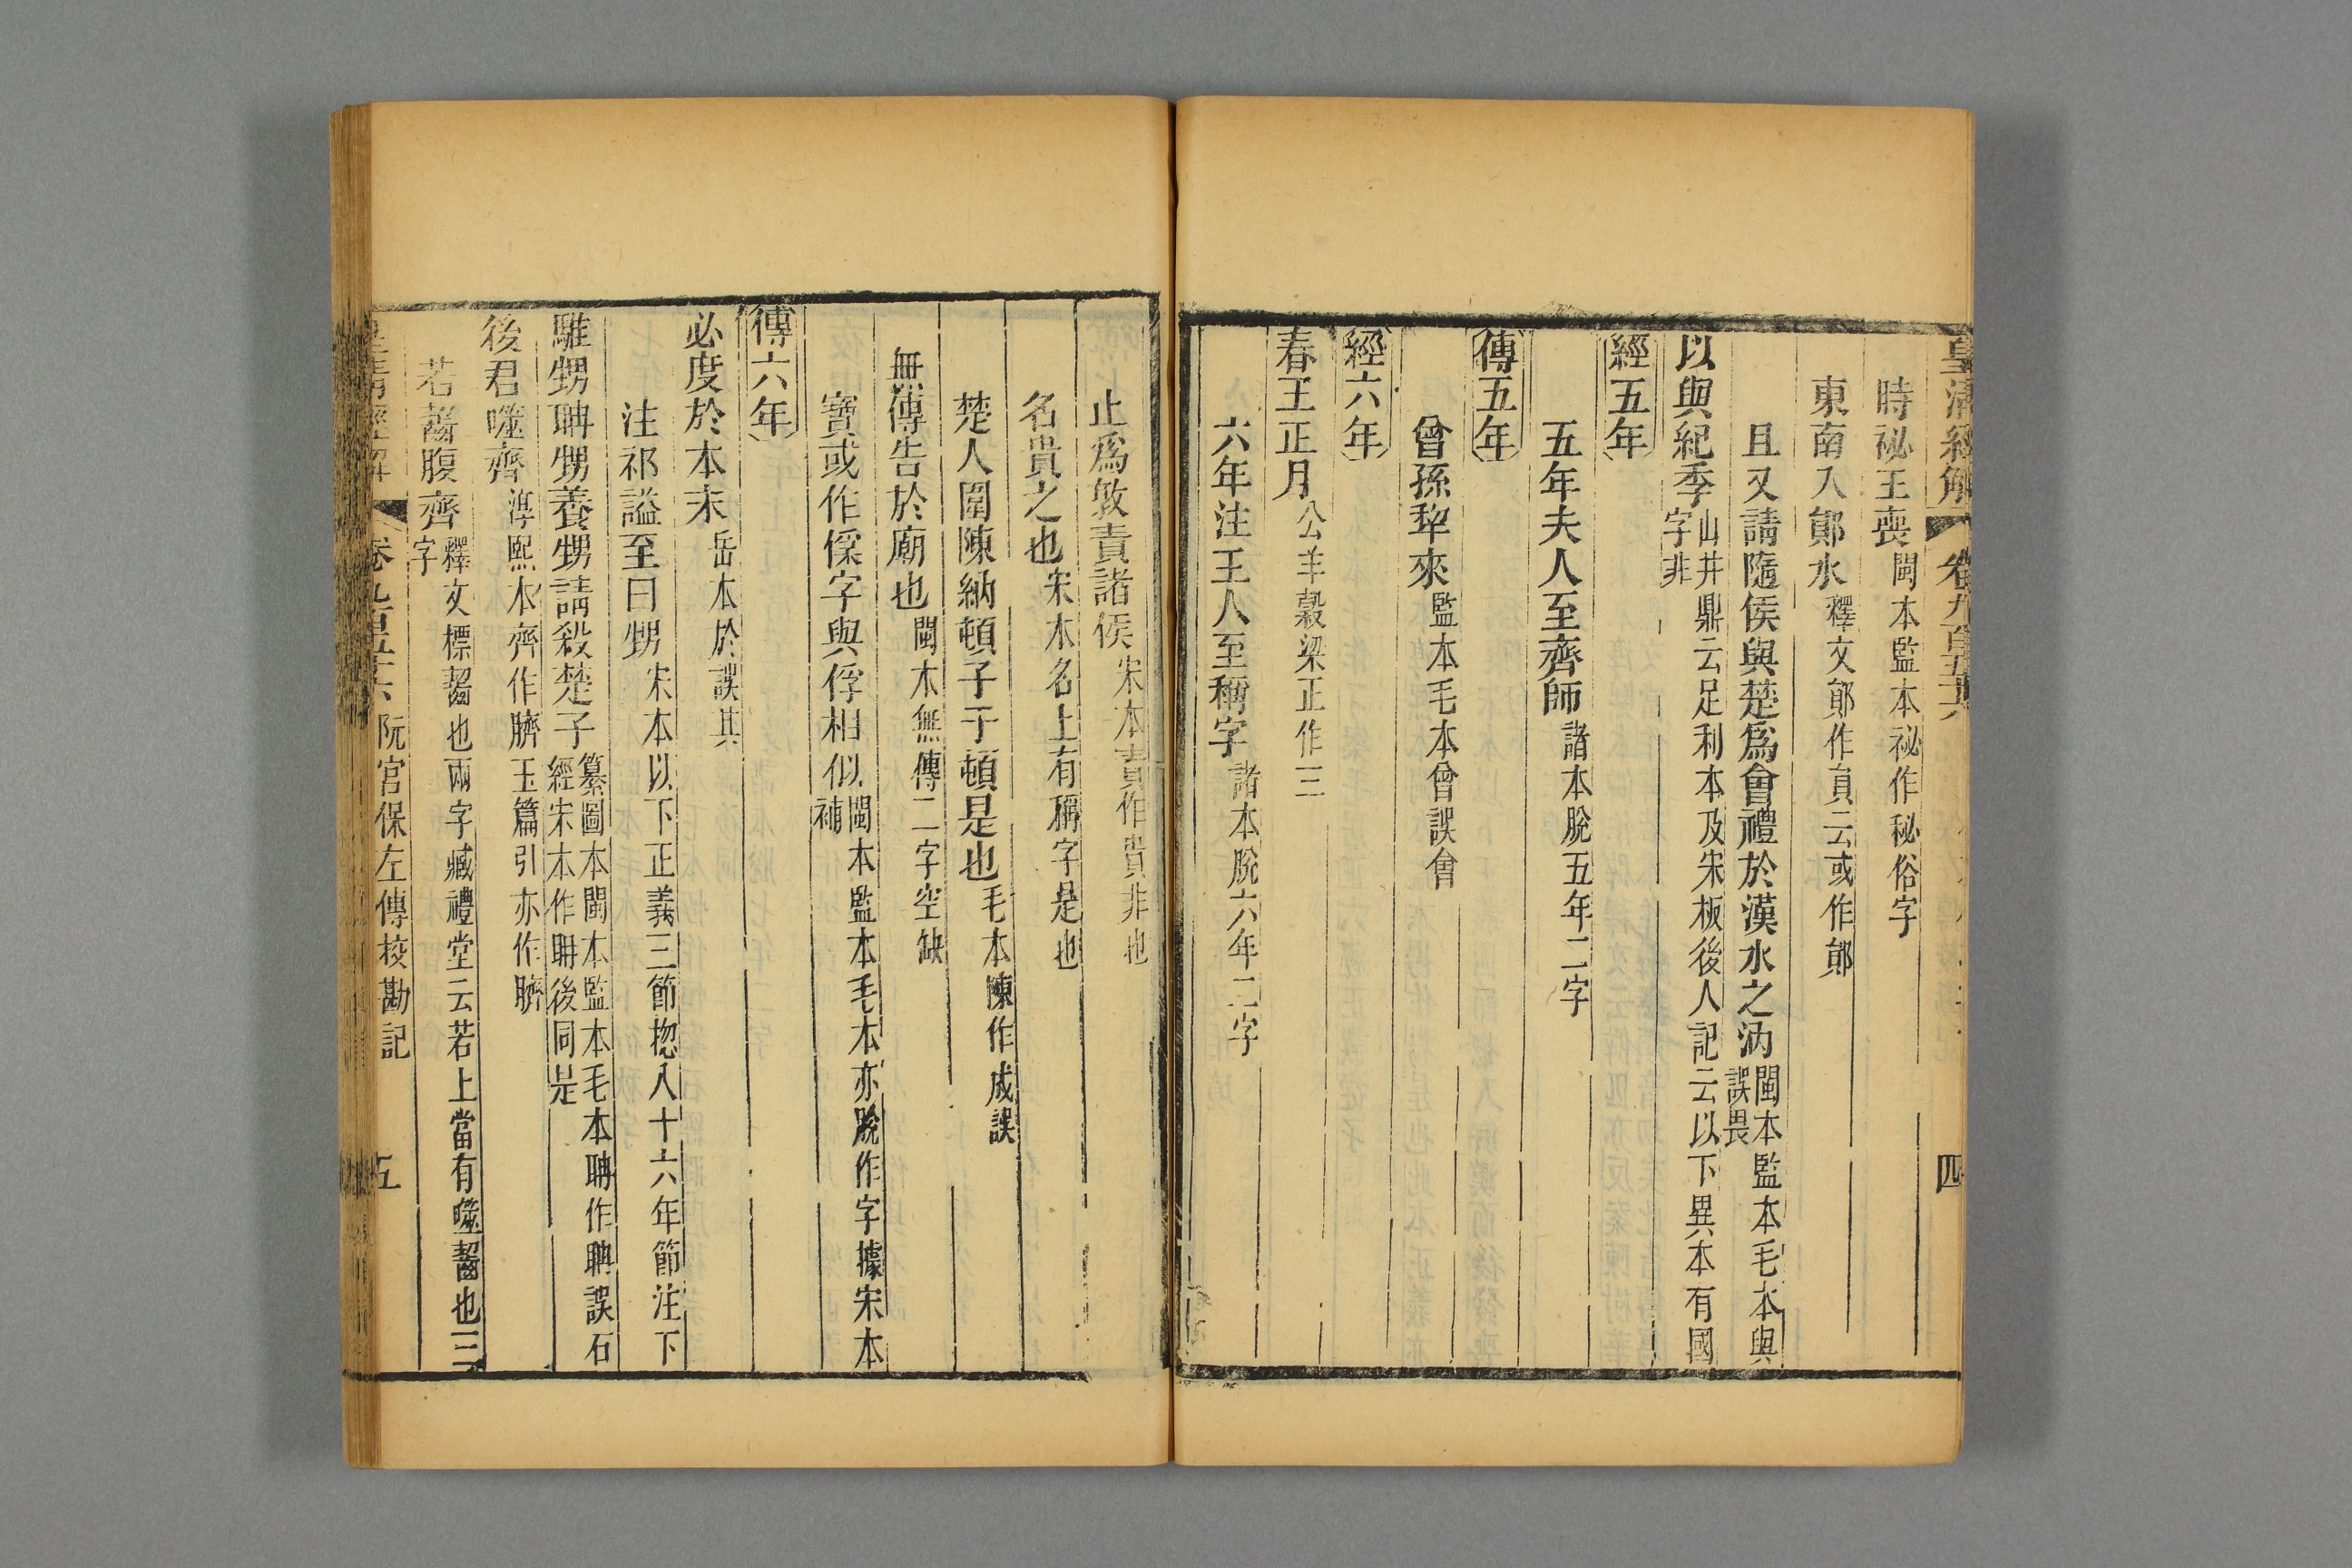 皇清經解 卷九百五十六 四
時祕王喪閩本監本祕作秘俗字
東南入鄖水釋文鄖作員云或作鄖
且又請隨侯與楚爲會禮於漢水之汭閩本監本毛本與誤畏
以與紀季山井鼎云足利本及宋板後人記云以下異本有國字非
經五年
五年夫人至齊師諸本脫五年二字
傳五年
曾孫犂來監本毛本曾誤會
經六年
春王正月公羊穀梁正作三
六年注王人至稱字諸本脫六年二字
止爲敎責諸侯宋本責作貴非也
名貴之也宋本名上有稱字是也
楚人圍陳納頓子于頓是也毛本陳作成誤
無傳告於廟也閩本無傳二字空缺
寶或作㑲字與俘相似閩本監本毛本亦脫作字據宋本補
傳六年
必度於本末岳本於誤其
注祁謚至曰甥宋本以下正義三節揔入十六年節注下
騅甥聃甥養甥請殺楚子纂圖本閩本監本毛本聃作聃誤石經宋本作聃後同是
後君噬齊淳熙本齊作臍玉篇引亦作臍
若齧腹齊釋文標齧也兩字臧禮堂云若上當有噬齧也三字
皇清經解 卷九百五十六 阮宮保左傳校勘記 五